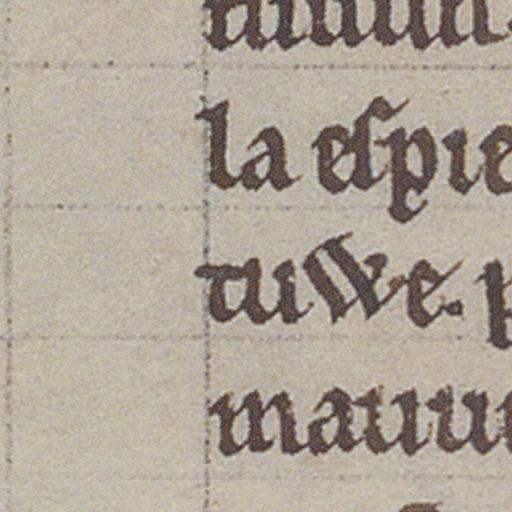 la espie
tuwe. p
mauu